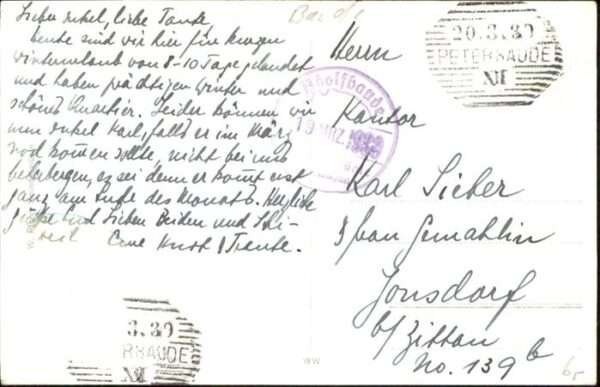 Lieber Onkel, liebe Tante,
heute sind wir hier für kurzen
Winterurlaub von 8-10 Tage gelandet
und haben prächtigen Winter und
schönes Quartier. Leider können wir
nun Onkel Karl, falls er im März
noch kommen sollte, nicht bei uns
beherbergen, es sei denn er kommt erst
ganz am Ende des Monats. Herzliche
Grüße Euch lieben Beiden und
Eure Kurt & Trente.
Herrn
Kantor
Karl Sieber
& frau Gemahlin
Jonsdorf
b/ Zittau
No. 139 b
20.3.30
PETERBAUDE
XII
3.30
RBAUDE